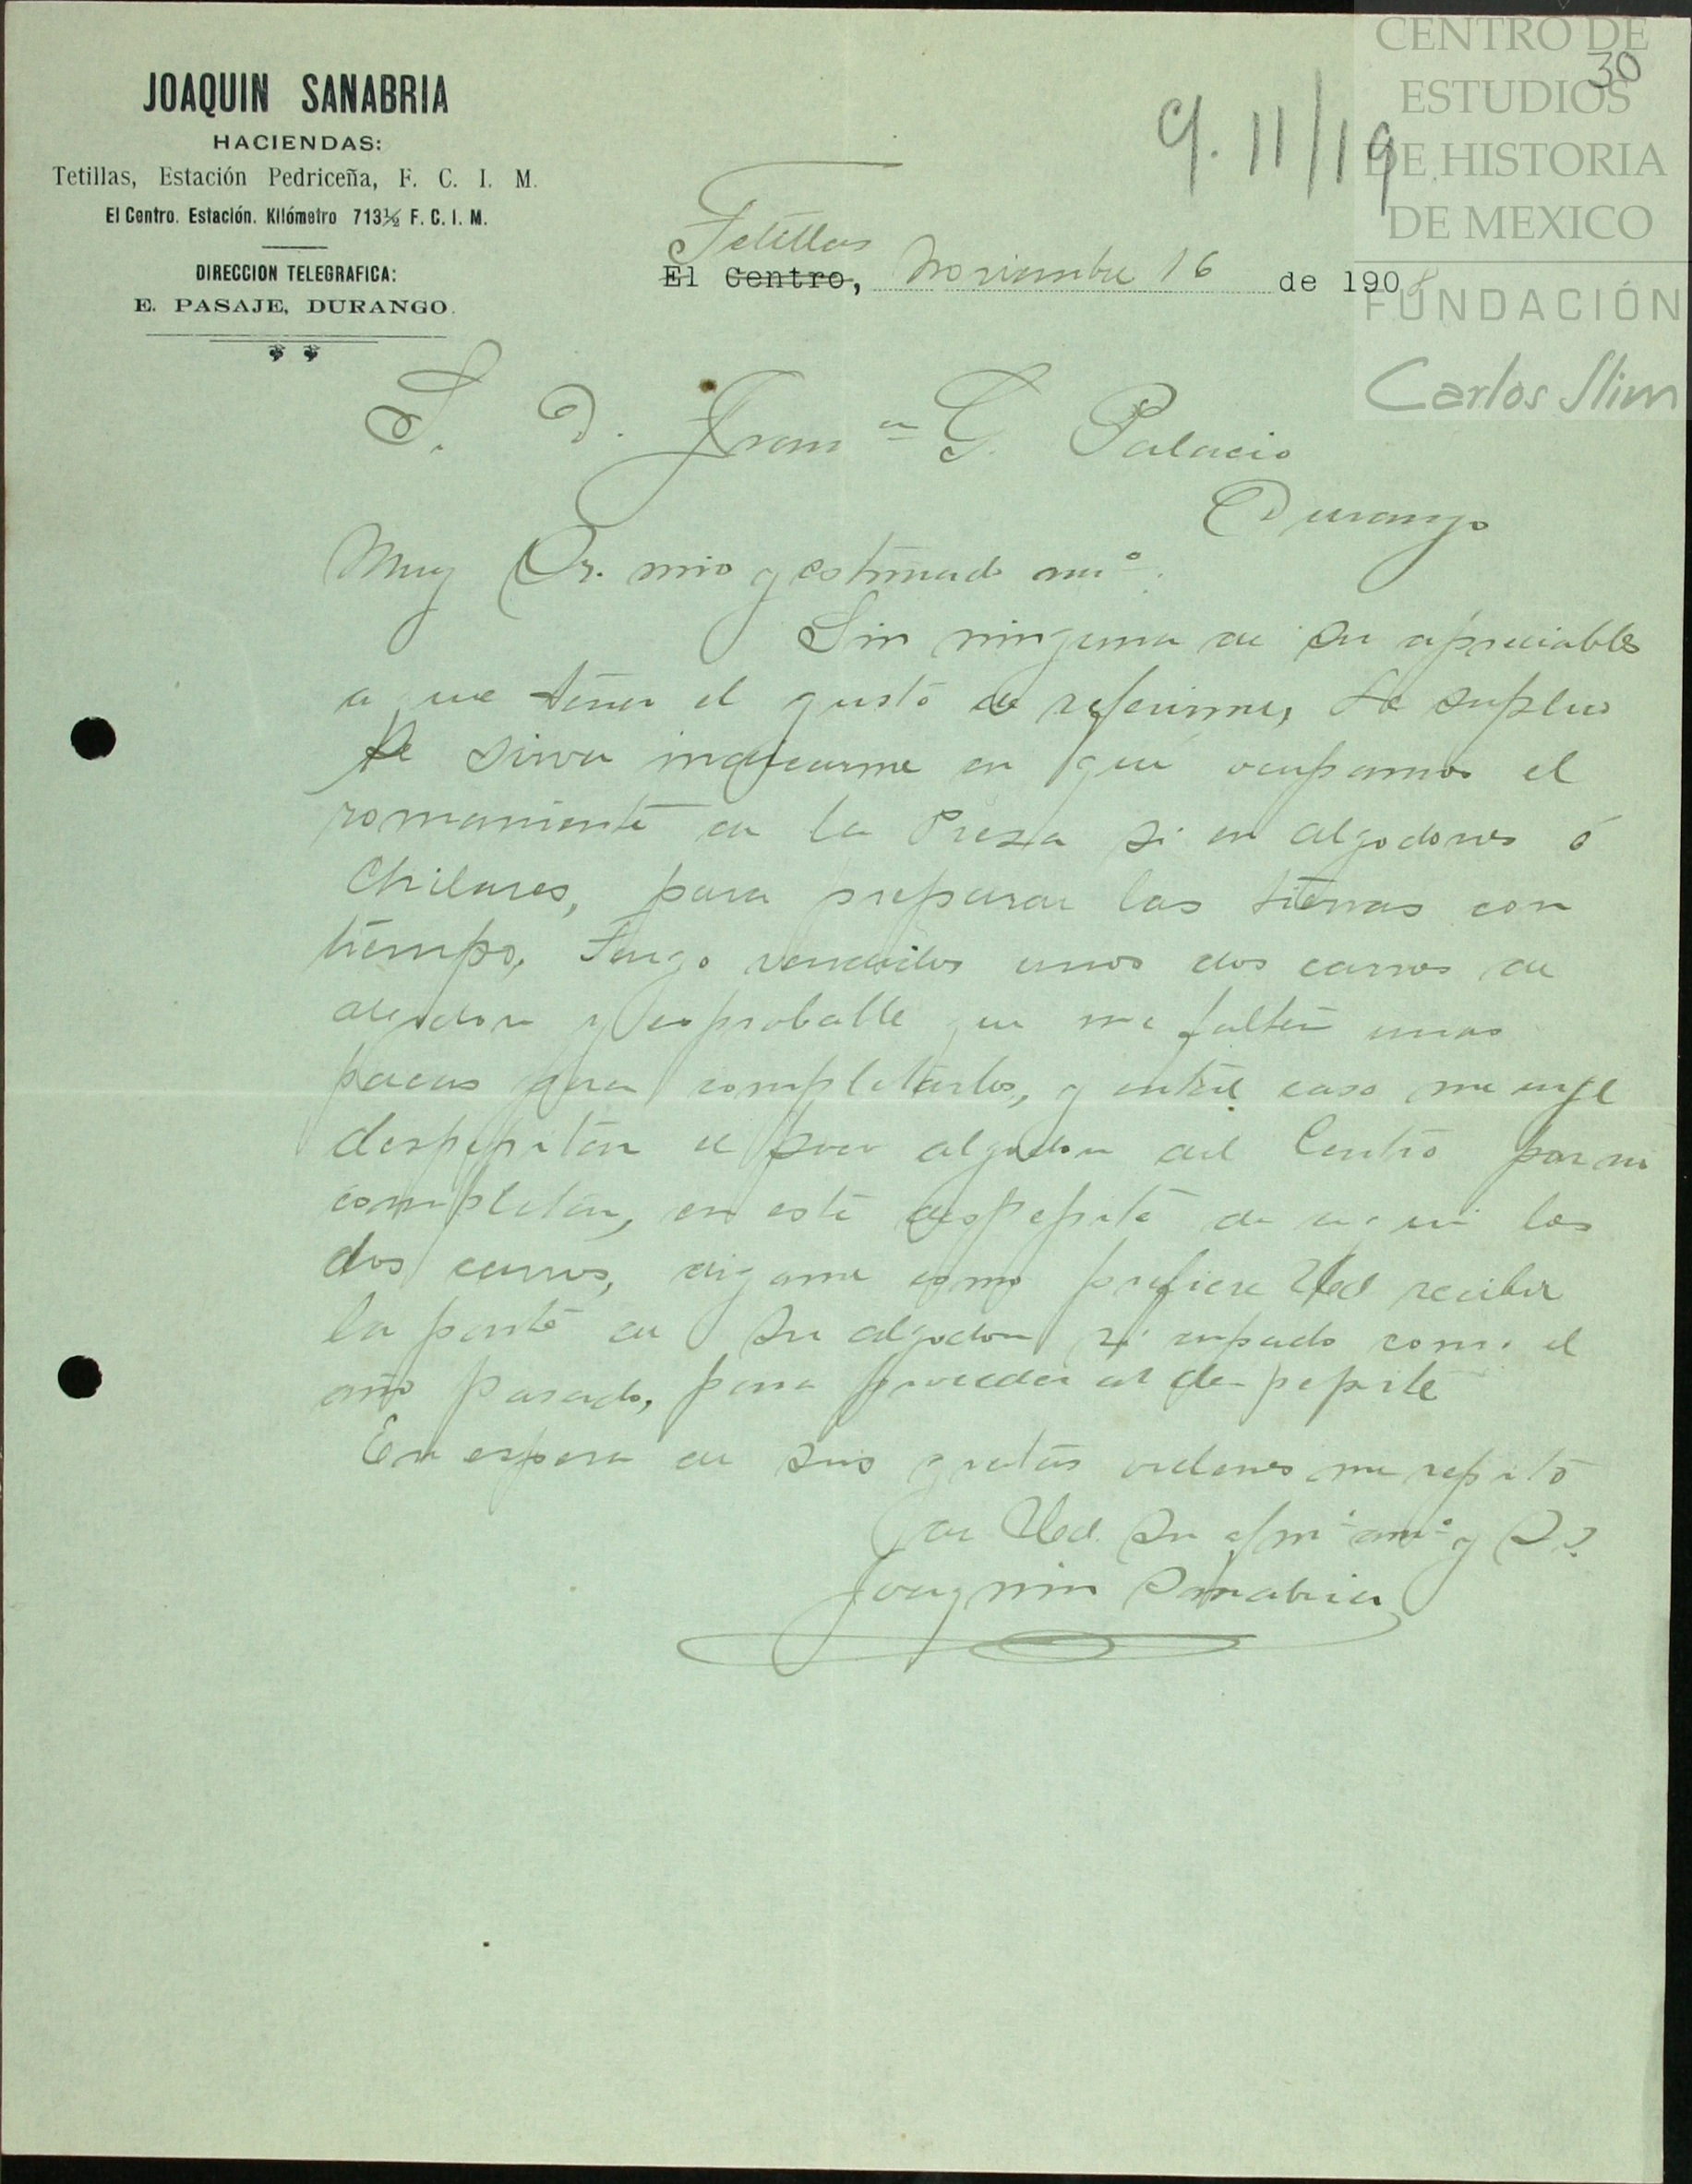 CENTRO DE
ESTUDIOS
DE HISTORIA
DE MEXICO
FUNDACIÓN
Carlos Slim
30
JOAQUIN SANABRIA
HACIENDAS:
Tetillas, Estación Pedriceña, F. C. I. M.
El Centro. Estación. Kilómetro 713½ F. C. I. M.
DIRECCION TELEGRAFICA:
E. PASAJE, DURANGO.
C. 11/19
Tetillas
El Centro, Noviembre 16 de 1908
S. D. Franco G. Palacio
Durango
Muy Sr. mio y estimado amo.
Sin ninguna de su apreciables
a que tener el gusto de referirme, le suplico
se sirva indicarme en que ocupamos el
romaniente de la Presa si en algodones ó
Chilares, para preparar las tierras con
tiempo, Tengo vendidos unos dos carros de
algodon y es probable que me falten unas
pacas para completarlos, y en tal caso me urje
despepitar el poco algodon del Centro para
completar, en este despepite de aqui los
dos carros, digame como prefiere Ud recibir
la parte de su algodon si enpacado como el
año pasado, para proceder al despepite
En espera de sus gratas ordenes me repito
de Ud. su afmo amo y S. S.
Joaquin Sanabria